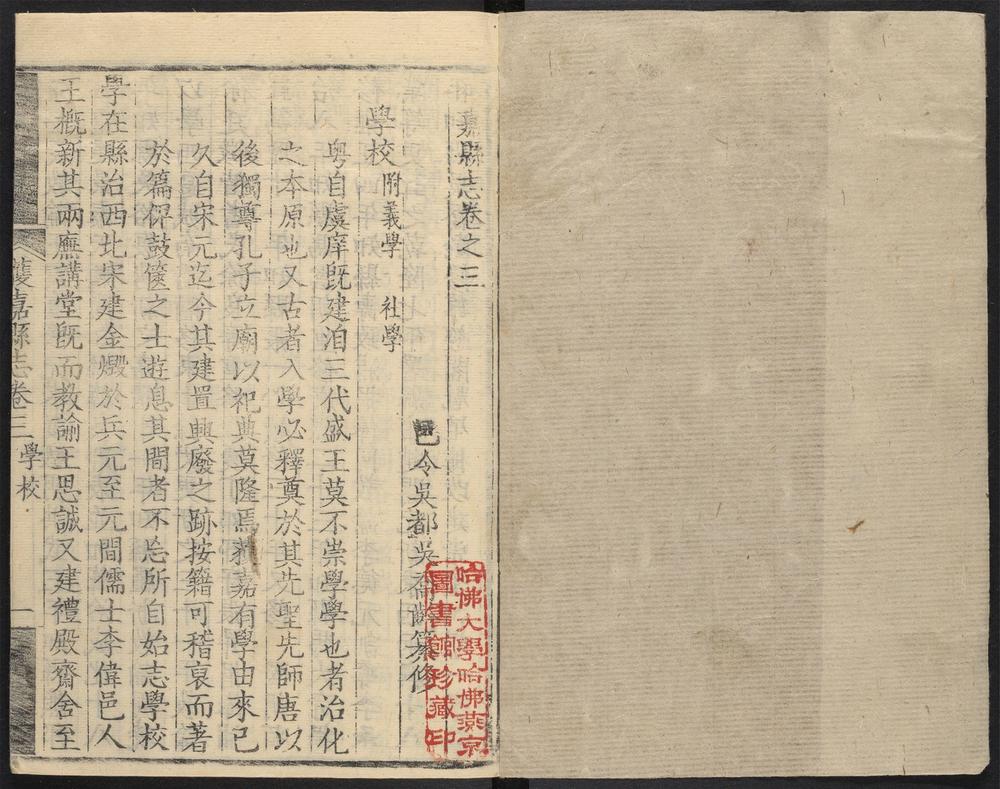 嘉縣志卷之三
邑令吳都吳喬齡纂修
學校 附義學 社學
粵自虞庠旣建洎三代盛王莫不崇學學也者治化
之本原也又古者入學必釋奠於其先聖先師唐以
後獨尊孔子立廟以祀典莫隆焉嘉有學由來已
久自宋元迄今其建置興廢之跡按籍可稽裒而著
於篇俾鼓篋之士遊息其間者不忘所自始志學校
學在縣治西北宋建金燬於兵元至元間儒士李偉邑人
王概新其兩廡講堂旣而教諭王思誠又建禮殿齋舍至
獲嘉縣志卷三 學校 一
哈佛大學哈佛燕京
圖書館珍藏印